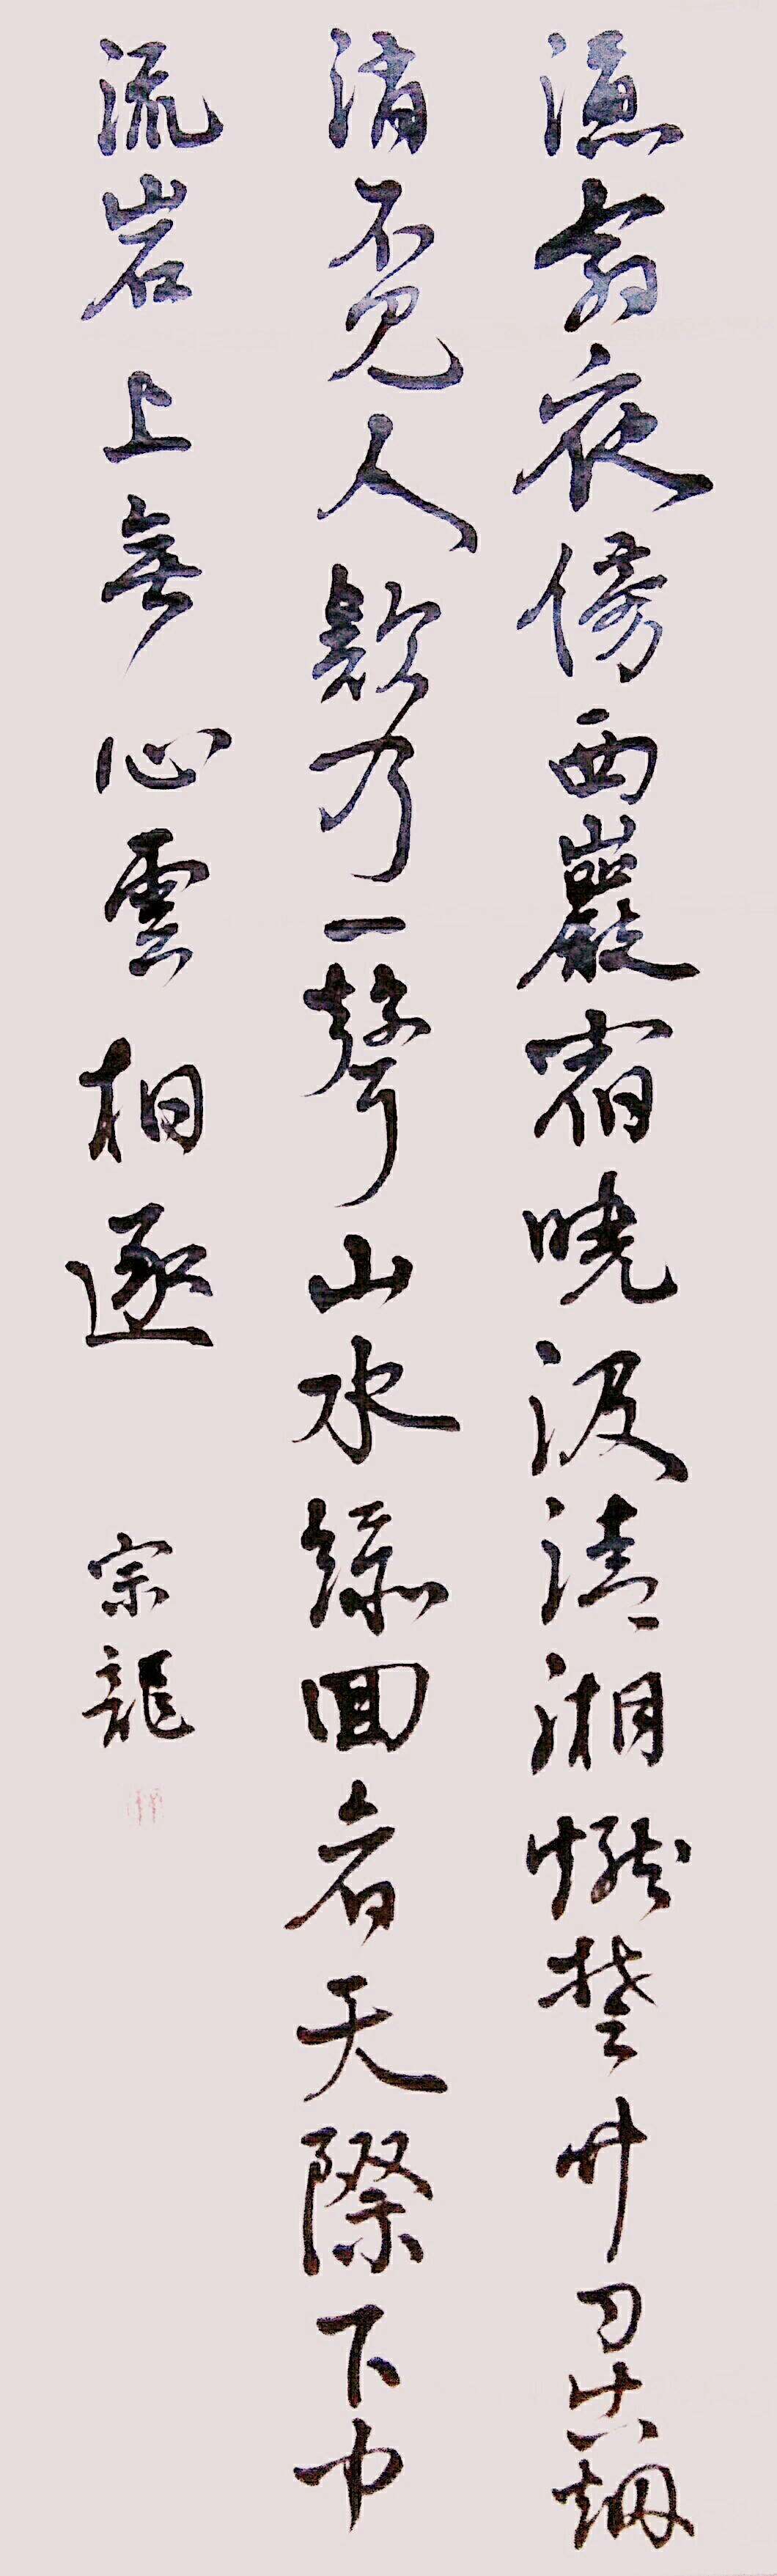 漁翁夜傍西巖宿曉汲清湘燃楚竹日出烟
消不見人欸乃一聲山水綠回看天際下中
流岩上無心雲相逐 宗龍